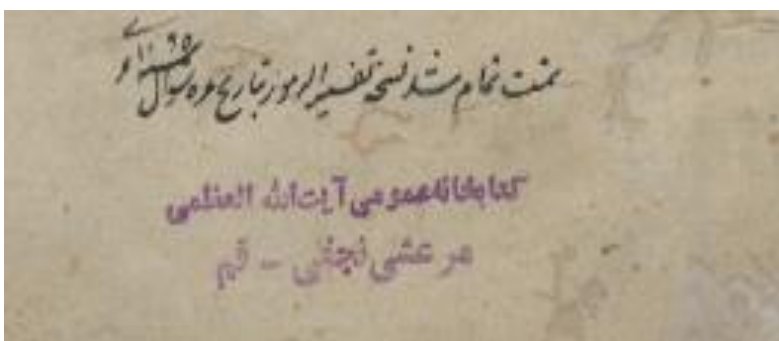 تمت تمام شد نسخه تفسیر الرموز بتاریخ غره شوال سنه ۱۰۶۵
کتابخانه عمومی آیت‌الله العظمی
مرعشی نجفی - قم